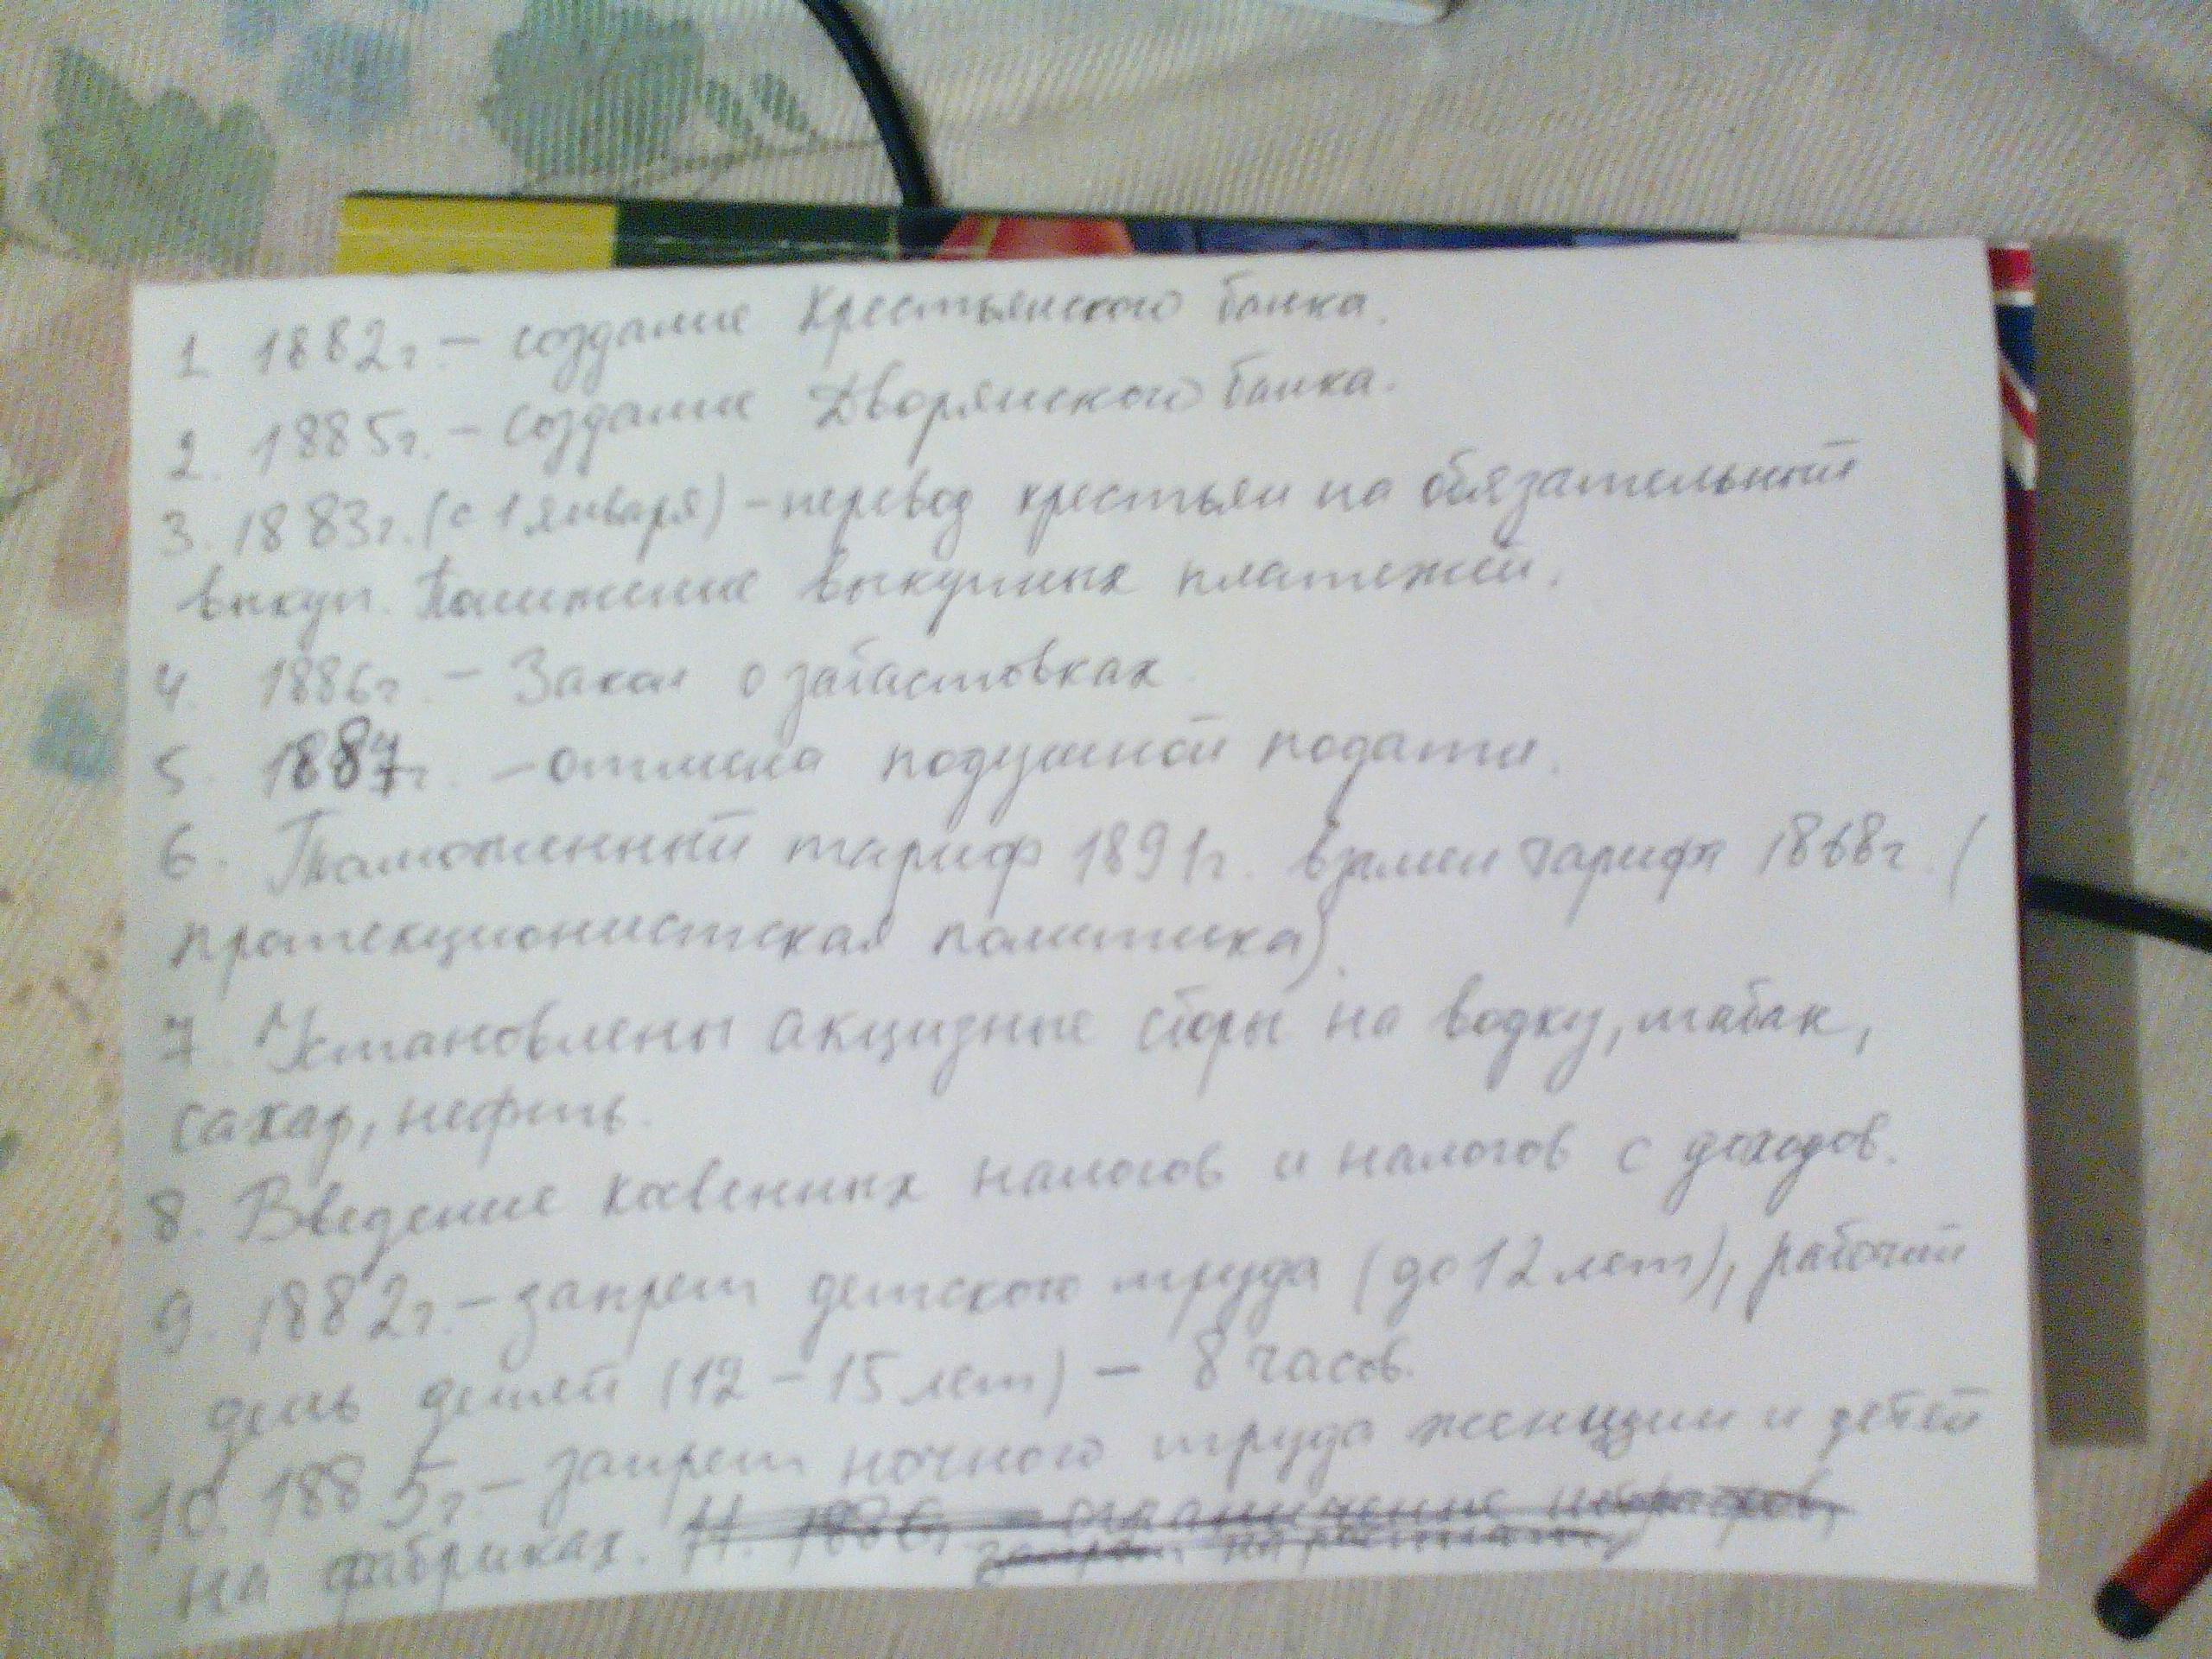 1. 1882г. – создание Крестьянского банка.
2. 1885г. – создание Дворянского банка.
3. 1883г. (с 1 января) – перевод крестьян на обязательный
выкуп. Понижение выкупных платежей.
4. 1886г. – Закон о забастовках.
5. 1887г. – отмена подушной подати.
6. Таможенный тариф 1891г. взамен тарифа 1868г. (
протекционистская политика).
7. Установлены акцизные сборы на водку, табак,
сахар, нефть.
8. Введение косвенных налогов и налогов с доходов.
9. 1882г. – запрет детского труда (до 12 лет), рабочий
день детей (12 – 15 лет) – 8 часов.
10. 1885г. – запрет ночного труда женщин и детей
на фабриках. 11. 1886г. – ограничение штрафов,